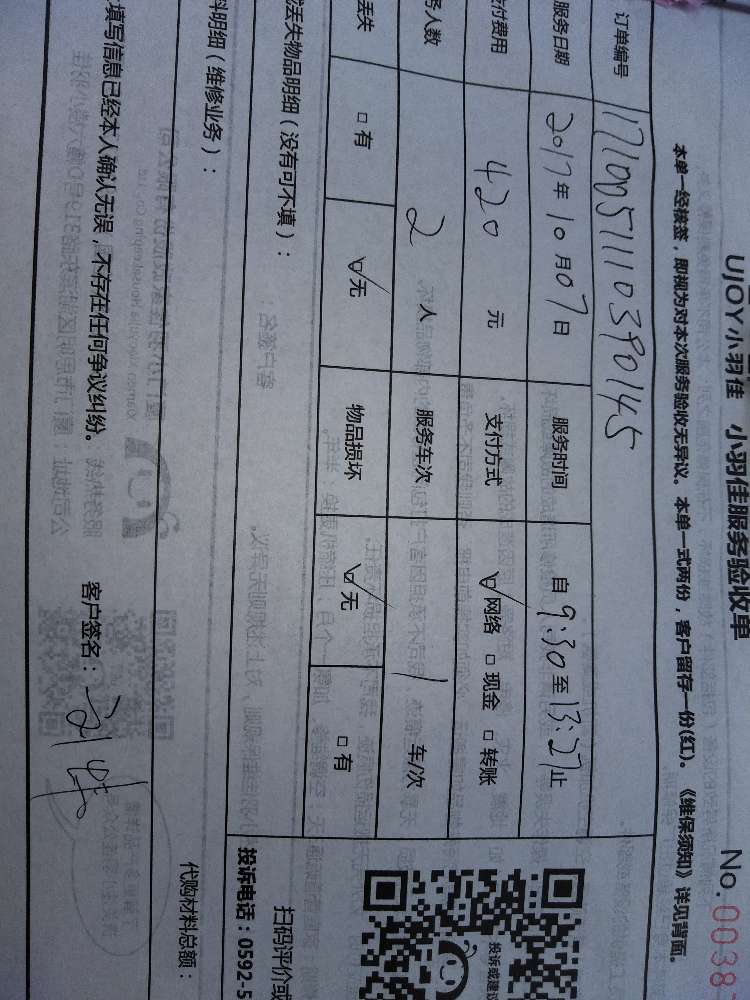 UJOY小羽佳 小羽佳服务验收单 No.0038
本单一经核签，即视为对本次服务验收无异议。本单一式两份，客户留存一份(红)。《维保须知》详见背面。
订单编号 1710051110390145
服务日期 2017年10月07日 服务时间 自9:30至13:27止
付费用 420元 支付方式 ☑网络 □现金 □转账
务人数 2人 服务车次 1车/次
丢失 □有 ☑无 物品损坏 ☑无 □有
丢失物品明细（没有可不填）：
扫码评价或
投诉或建议
投诉电话：0592-5
料明细（维修业务）：
代购材料总额：
填写信息已经本人确认无误，不存在任何争议纠纷。 客户签名：